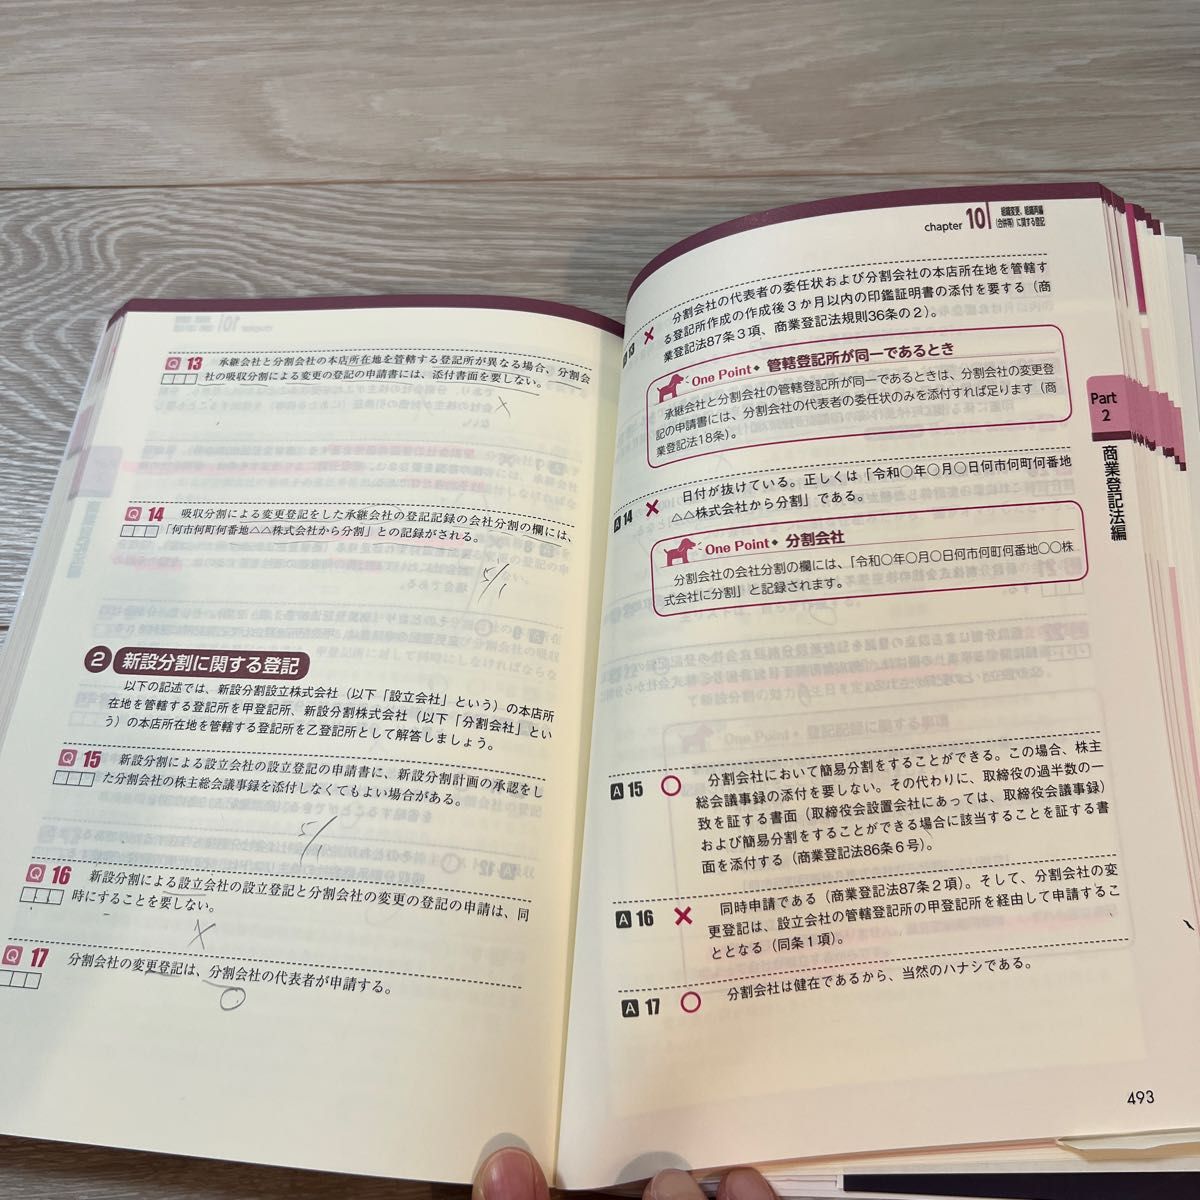 Q 13 承継会社と分割会社の本店所在地を管轄する登記所が異なる場合、分割会
社の吸収分割による変更の登記の申請書には、添付書面を要しない。
×
Q 14 吸収分割による変更登記をした承継会社の登記記録の会社分割の欄には、
「何市何町何番地△△株式会社から分割」との記録がされる。
5/1
2 新設分割に関する登記
以下の記述では、新設分割設立株式会社（以下「設立会社」という）の本店所
在地を管轄する登記所を甲登記所、新設分割株式会社（以下「分割会社」とい
う）の本店所在地を管轄する登記所を乙登記所として解答しましょう。
Q 15 新設分割による設立会社の設立登記の申請書に、新設分割計画の承認をし
た分割会社の株主総会議事録を添付しなくてもよい場合がある。
5/1
Q 16 新設分割による設立会社の設立登記と分割会社の変更の登記の申請は、同
時にすることを要しない。
×
Q 17 分割会社の変更登記は、分割会社の代表者が申請する。
○
chapter 10 組織変更、組織再編
（合併等）に関する登記
13 × 分割会社の代表者の委任状および分割会社の本店所在地を管轄す
る登記所作成の作成後3か月以内の印鑑証明書の添付を要する（商
業登記法87条3項、商業登記法規則36条の2）。
One Point◆ 管轄登記所が同一であるとき
承継会社と分割会社の管轄登記所が同一であるときは、分割会社の変更登
記の申請書には、分割会社の代表者の委任状のみを添付すれば足ります（商
業登記法18条）。
A 14 × 日付が抜けている。正しくは「令和○年○月○日何市何町何番地
△△株式会社から分割」である。
One Point◆ 分割会社
分割会社の会社分割の欄には、「令和○年○月○日何市何町何番地○○株
式会社に分割」と記録されます。
A 15 ○ 分割会社において簡易分割をすることができる。この場合、株主
総会議事録の添付を要しない。その代わりに、取締役の過半数の一
致を証する書面（取締役会設置会社にあっては、取締役会議事録）
および簡易分割をすることができる場合に該当することを証する書
面を添付する（商業登記法86条6号）。
A 16 × 同時申請である（商業登記法87条2項）。そして、分割会社の変
更登記は、設立会社の管轄登記所の甲登記所を経由して申請するこ
ととなる（同条1項）。
A 17 ○ 分割会社は健在であるから、当然のハナシである。
Part
2
商業登記法編
493